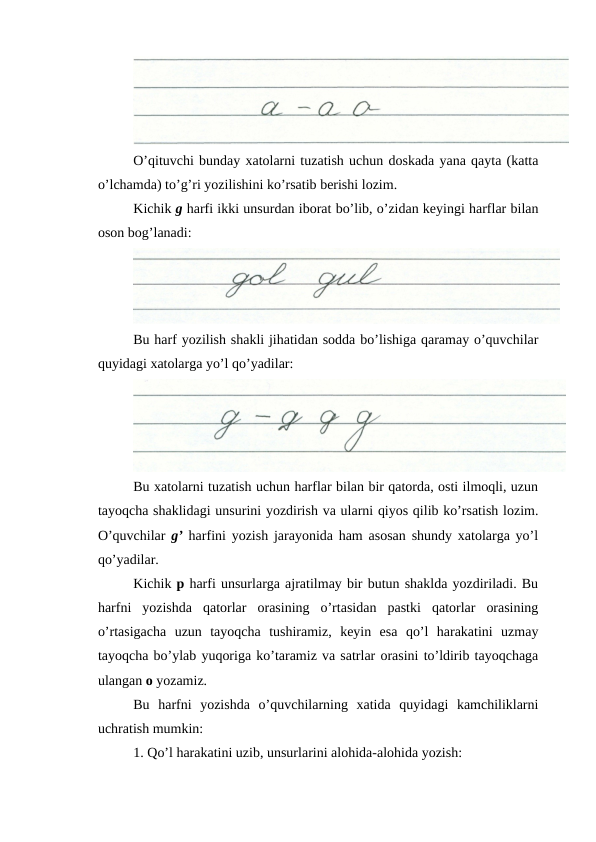 a – a o
O’qituvchi bunday xatolarni tuzatish uchun doskada yana qayta (katta
o’lchamda) to’g’ri yozilishini ko’rsatib berishi lozim.
Kichik g harfi ikki unsurdan iborat bo’lib, o’zidan keyingi harflar bilan
oson bog’lanadi:
gol gul
Bu harf yozilish shakli jihatidan sodda bo’lishiga qaramay o’quvchilar
quyidagi xatolarga yo’l qo’yadilar:
g – g g g
Bu xatolarni tuzatish uchun harflar bilan bir qatorda, osti ilmoqli, uzun
tayoqcha shaklidagi unsurini yozdirish va ularni qiyos qilib ko’rsatish lozim.
O’quvchilar g’ harfini yozish jarayonida ham asosan shundy xatolarga yo’l
qo’yadilar.
Kichik p harfi unsurlarga ajratilmay bir butun shaklda yozdiriladi. Bu
harfni yozishda qatorlar orasining o’rtasidan pastki qatorlar orasining
o’rtasigacha uzun tayoqcha tushiramiz, keyin esa qo’l harakatini uzmay
tayoqcha bo’ylab yuqoriga ko’taramiz va satrlar orasini to’ldirib tayoqchaga
ulangan o yozamiz.
Bu harfni yozishda o’quvchilarning xatida quyidagi kamchiliklarni
uchratish mumkin:
1. Qo’l harakatini uzib, unsurlarini alohida-alohida yozish: